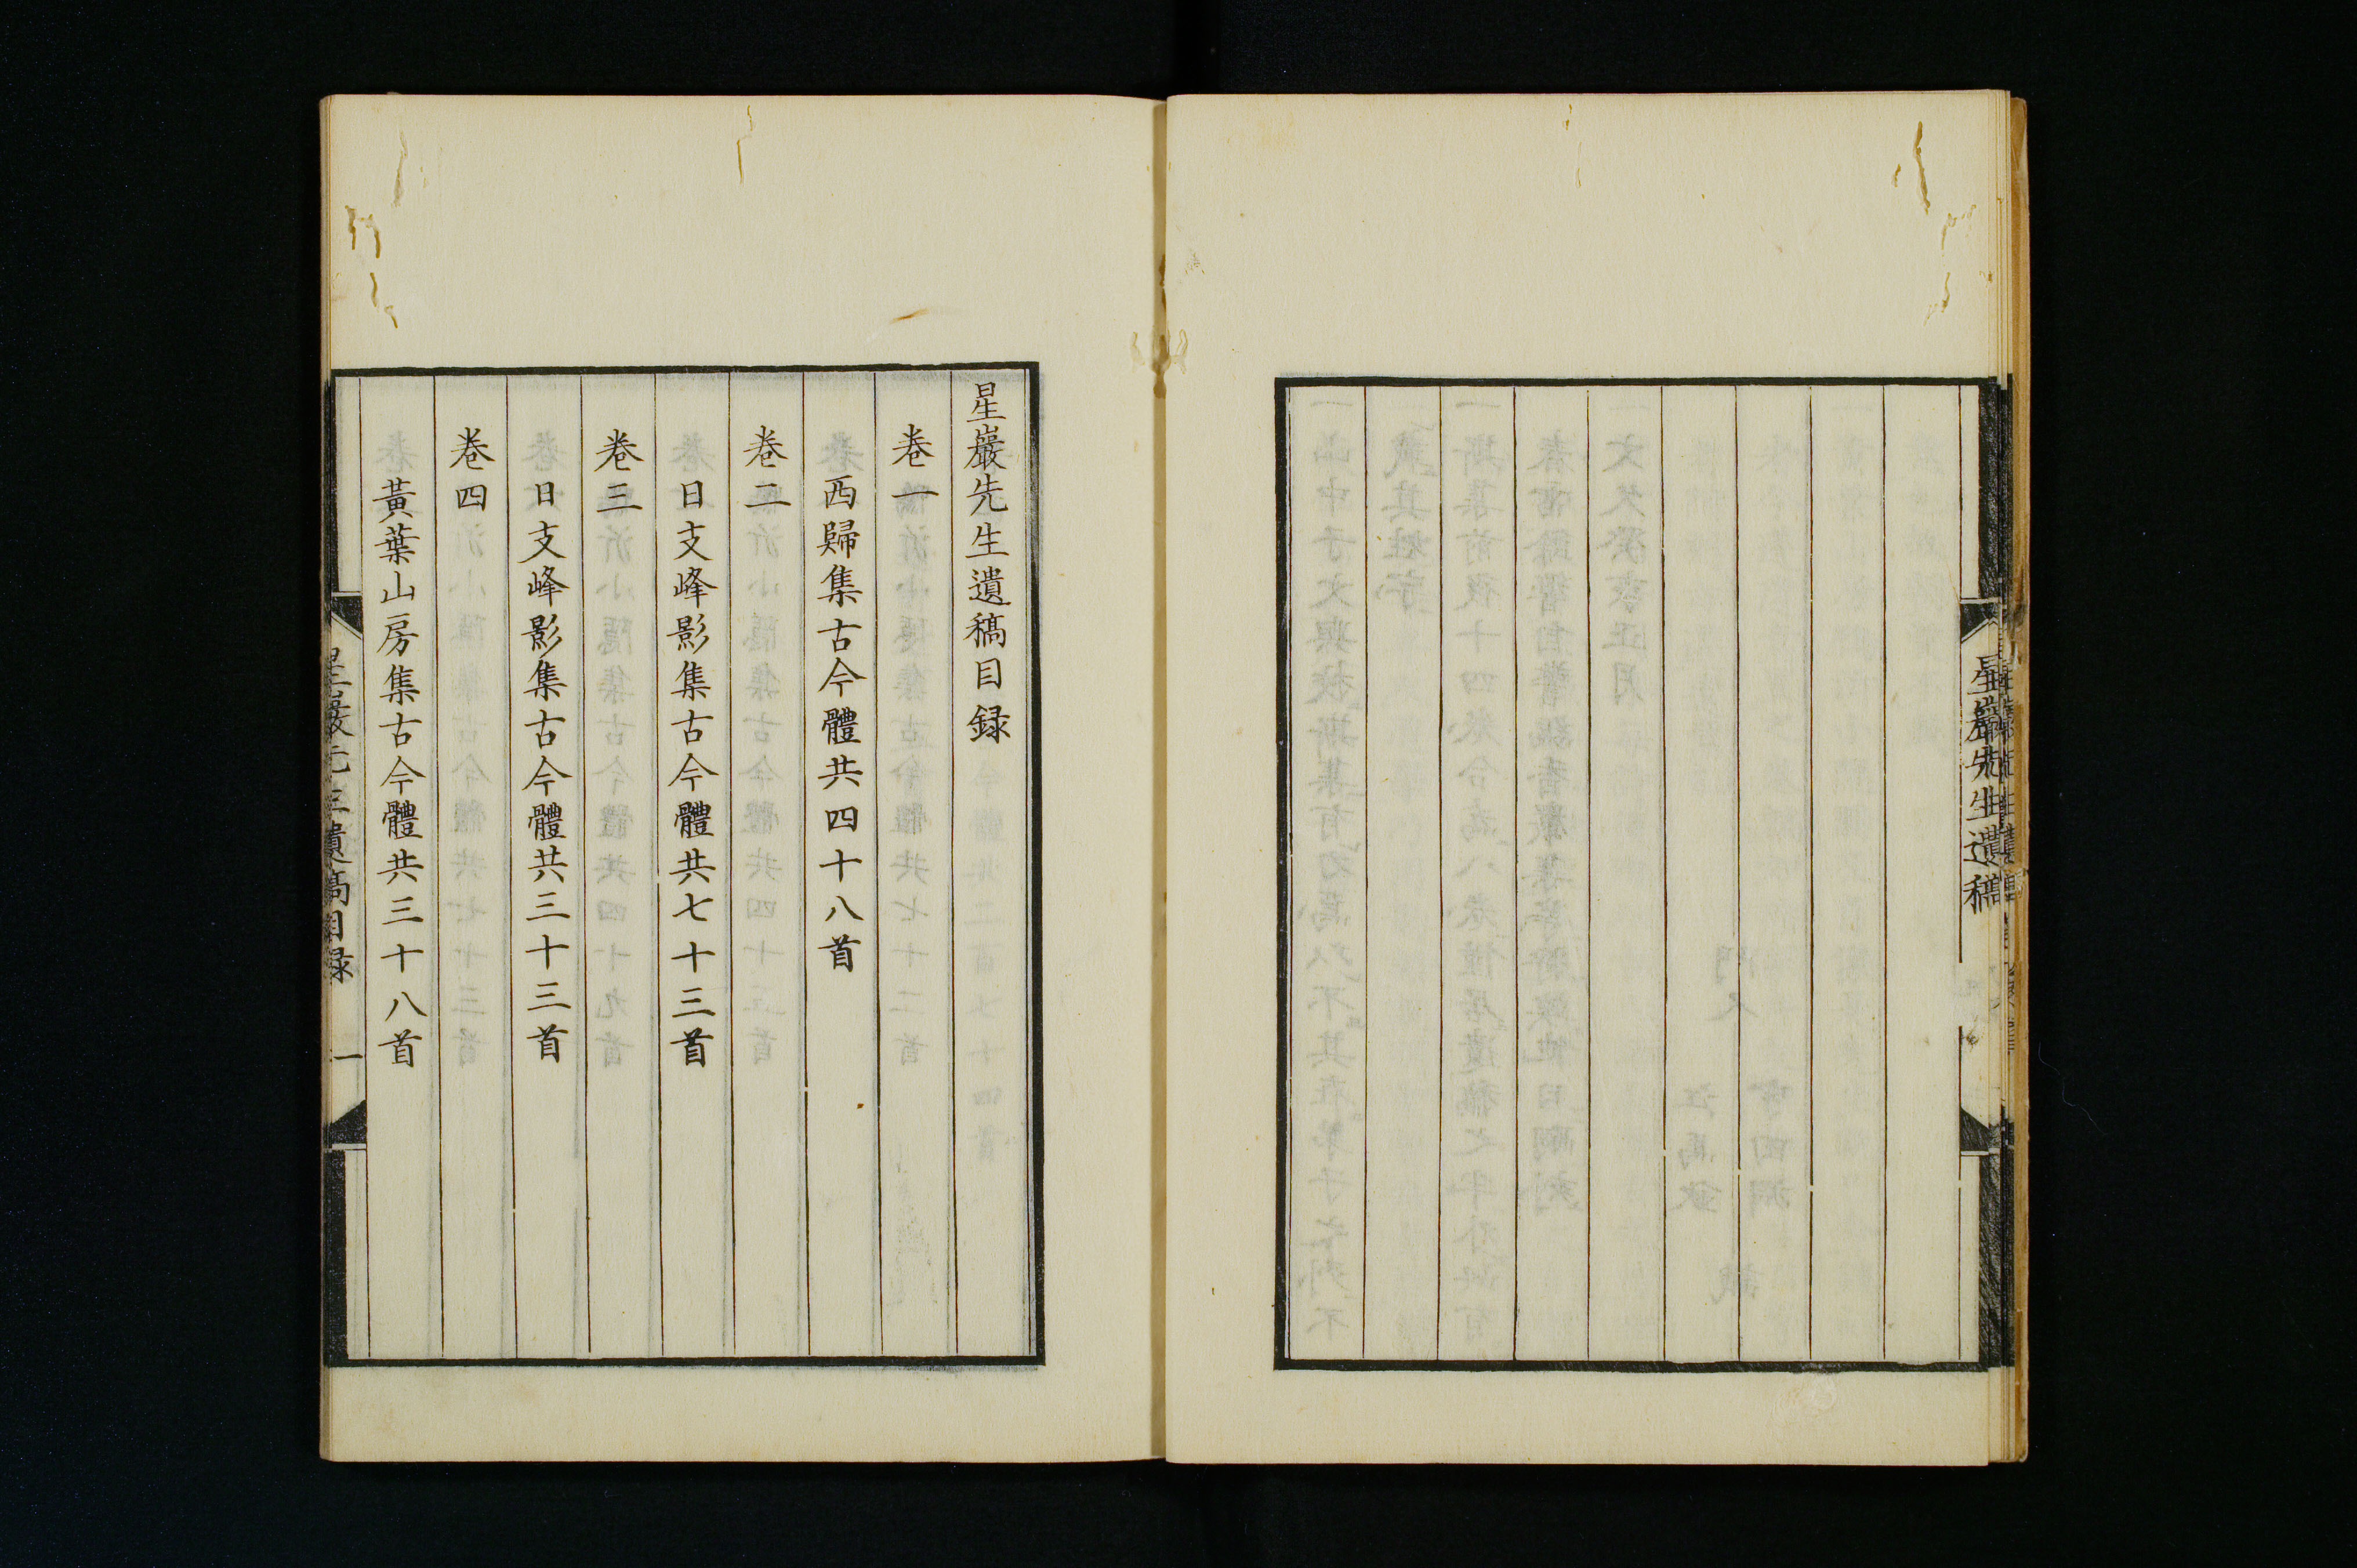 星巖先生遺稿
星巖先生遺稿目録
巻一
西歸集古今體共四十八首
巻二
日支峰影集古今體共七十三首
巻三
日支峰影集古今體共三十三首
巻四
黃葉山房集古今體共三十八首
星巖先生遺稿目録 一